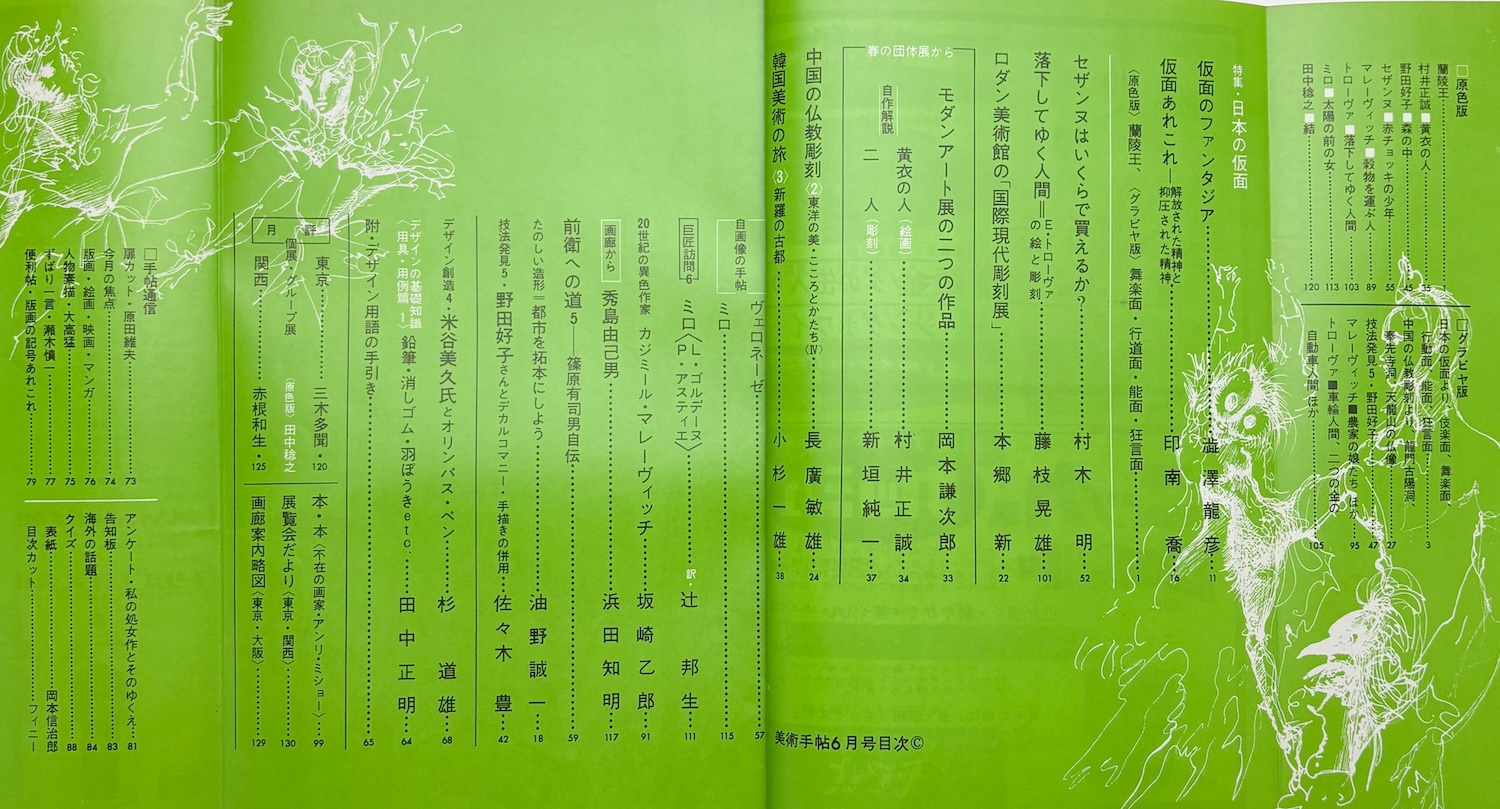 □原色版
蘭陵王……1
村井正誠■黄衣の人……35
野田好子■森の中……45
セザンヌ■赤チョッキの少年……55
マレーヴィッチ■穀物を運ぶ人……89
トローヴァ■落下してゆく人間……103
ミロ■太陽の前の女……113
田中稔之■結……120
□グラビヤ版
日本の仮面より、伎楽面、舞楽面、
行動面、能面、狂言面……3
中国の仏教彫刻より、龍門古陽洞、
奉先寺洞、天龍山の仏像……27
技法発見5・野田好子……47
マレーヴィッチ■農家の娘たち ほか……95
トローヴァ■車輪人間、二つの金の
自動車人間 ほか……105
特集・日本の仮面
仮面のファンタジア……澁澤龍彦……11
仮面あれこれ―解放された精神と抑圧された精神 印南 喬……16
〈原色版〉蘭陵王、〈グラビヤ版〉舞楽面・行道面・能面・狂言面……1
セザンヌはいくらで買えるか?……村木 明……52
落下してゆく人間＝E・トローヴァの絵と彫刻 藤枝晃雄……101
ロダン美術館の「国際現代彫刻展」……本郷 新……22
春の団体展から
モダンアート展の二つの作品……岡本謙次郎……33
自作解説
黄衣の人(絵画)……村井正誠……34
二人(彫刻)……新垣純一……37
中国の仏教彫刻〈2〉東洋の美・こころとかたち〈Ⅳ〉……長廣敏雄……24
韓国美術の旅〈3〉新羅の古都……小杉一雄……38
美術手帖6月号目次©
自画像の手帖
ヴェロネーゼ……57
ミロ……115
巨匠訪問6
ミロ〈L・ゴルデーヌ P・アスティエ〉……訳・辻 邦生……111
20世紀の異色作家 カジミール・マレーヴィッチ……坂崎乙郎……91
画廊から
秀島由己男……浜田知明……117
前衛への道5――篠原有司男自伝……59
たのしい造形＝都市を拓本にしよう……油野誠一……18
技法発見5・野田好子さんとデカルコマニー・手描きの併用……佐々木 豊……42
デザイン創造4・米谷美久氏とオリンパス・ペン……杉 道雄……68
デザインの基礎知識〈用具・用例篇 1〉鉛筆・消しゴム・羽ぼうきetc.……田中正明……64
附・デザイン用語の手引き……65
月評
個展・グループ展
東京……三木多聞・120
〈原色版〉田中稔之
関西……赤根和生・125
本・本〈不在の画家・アンリ・ミショー〉……99
展覧会だより〈東京・関西〉……130
画廊案内略図〈東京・大阪〉……129
□手帖通信
扉カット・原田維夫……73
今月の焦点……74
版画・絵画・映画・マンガ……76
人物素描・大高猛……75
ずばり一言・瀬木慎一……77
便利帖・版画の記号あれこれ……79
アンケート・私の処女作とそのゆくえ……81
告知板……83
海外の話題……84
クイズ……88
表紙……岡本信治郎
目次カット……フィニー